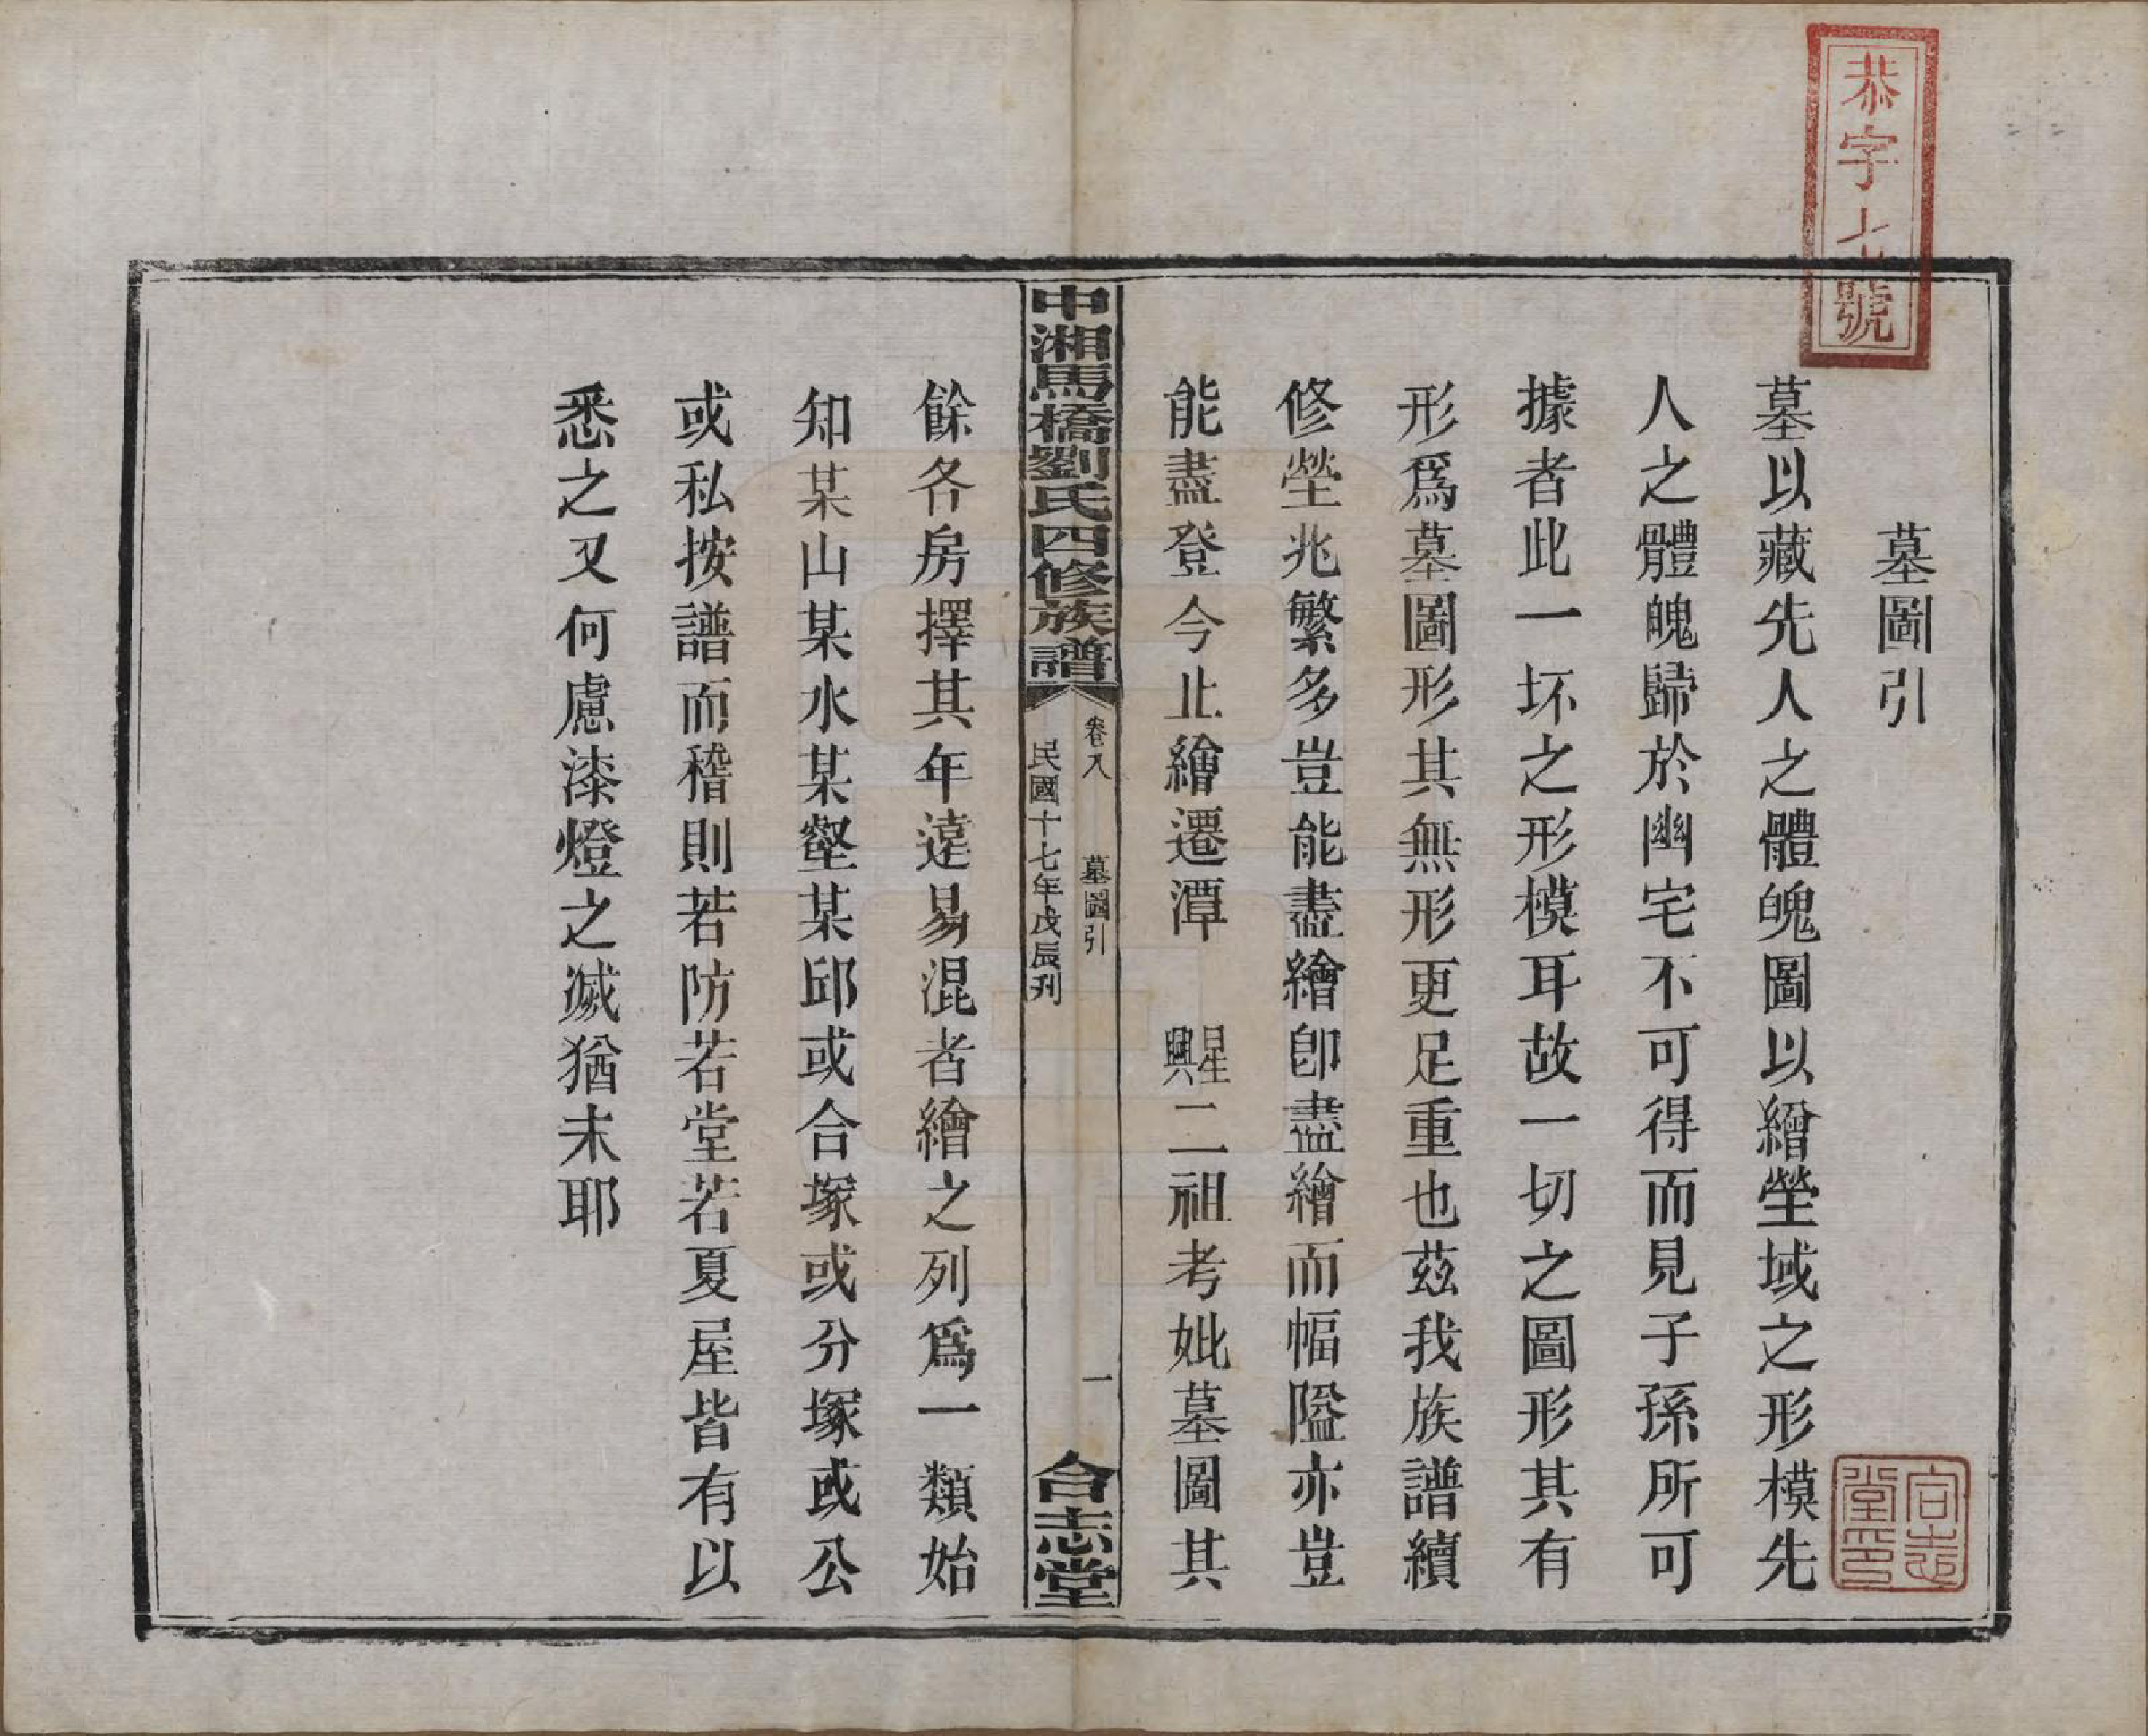 恭字七號
墓圖引
墓以藏先人之體魄圖以繪塋域之形模先
人之體魄歸於幽宅不可得而見子孫所可
據者此一坏之形模耳故一切之圖形其有
形爲墓圖形其無形更足重也茲我族譜續
修塋兆繁多豈能盡繪卽盡繪而幅隘亦豈
能盡登今止繪遷潭 星興二祖考妣墓圖其
中湘馬橋劉氏四修族譜
卷八 墓圖引 一
民國十七年戊辰刋
合志堂
餘各房擇其年遠易混者繪之列爲一類始
知某山某水某壑某邱或合塚或分塚或公
或私按譜而稽則若防若堂若夏屋皆有以
悉之又何慮漆燈之滅猶未耶
合志堂印